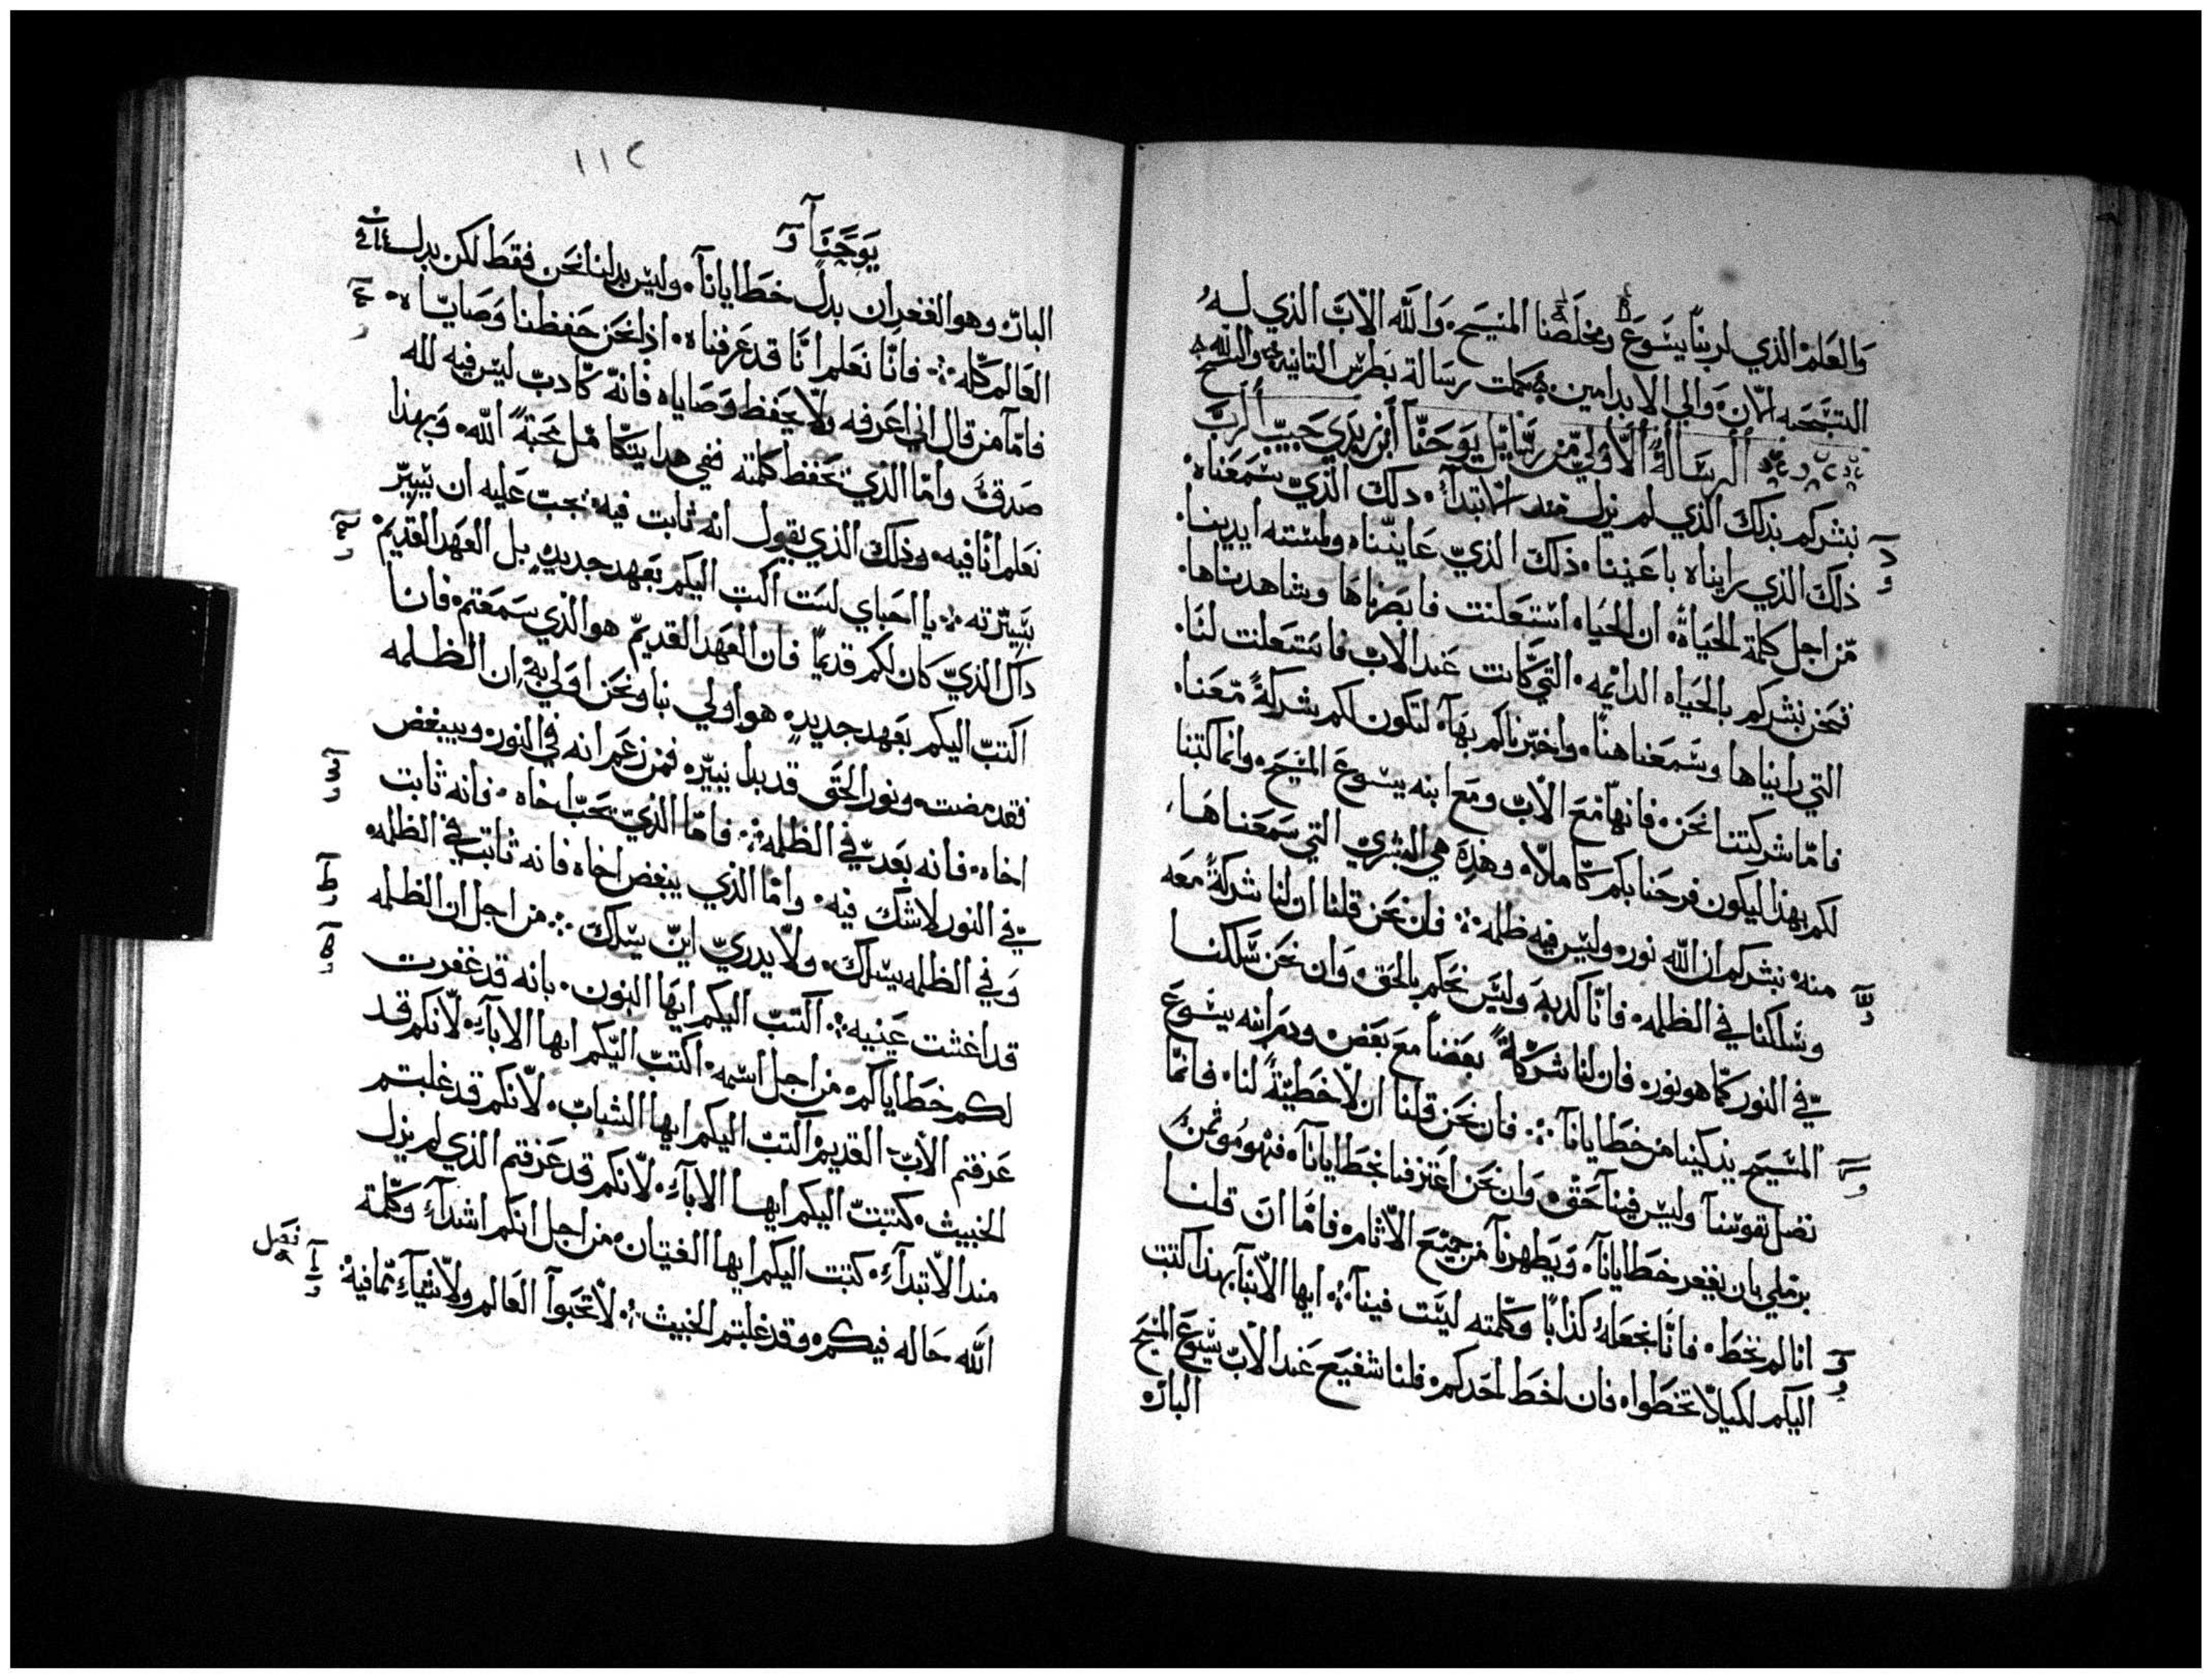 والعلم الذي لربنا يسوع ومخلصنا المسيح ٠ والله الاب الذي له
التسبحه الان ٠ والي الابد امين ٠ كملت رسالة بطرس التانية ٠ والله
الرسالة الاولي من رسايل يوحنا ابن زبدي حبيب الرب
نبشركم بذلك الذي لم يزل منذ الابتدآء ٠ ذلك الذي سمعناه ٠
ذلك الذي رايناه باعيننا ٠ ذلك الذي عايناه ولمسته ايدينا ٠
من اجل كلمة الحياة ٠ ان الحياه استعلنت فابصرناها وشاهدناها ٠
فنحن نبشركم بالحياه الدايمه ٠ التي كانت عند الاب فاستعلنت لنا ٠
التي رايناها وسمعناها ٠ واخبرناكم بهآ لتكون لكم شركة معنا ٠
فاما شركتنا نحن ٠ فانها مع الاب ومع ابنه يسوع المسيح ٠ وانما كتبنا
لكم بهذا ليكون فرحنا بكم كاملا ٠ وهذه هي البشري التي سمعناها
منه ٠ نبشركم ان الله نور ٠ وليس فيه ظلمه ٠ فان نحن قلنا ان لنا شركة معه
وسلكنا في الظلمه ٠ فانا كدبة وليس نحكم بالحق ٠ وان نحن سلكنا
في النور كما هو نور ٠ فان لنا شركة بعضنا مع بعض ٠ ودم ابنه يسوع
المسيح يذكينا من خطايانآ ٠ فان نحن قلنا ان لا خطية لنا ٠ فانما
نضل نفوسنا وليس فينا حق ٠ وان نحن اعترفنا بخطايانآ ٠ فهو مؤتمن
بر ملي بان يغفر خطايانآ ٠ ويطهرنآ من جميع الاثام ٠ فاما ان قلنا
انا لم نخط ٠ فانا نجعله كذابا وكلمته ليست فينآ ٠ ايها الابنآ بهذا كتبت
اليكم لكيلا تخطوا ٠ فان اخط احدكم ٠ فلنا شفيع عند الاب يسوع المسيح
البار
١١٢
يوحنآ
البار ٠ وهو الغفران بدل خطايانآ ٠ وليس بدلنا نحن فقط لكن بدل
العالم كله ٠ فانا نعلم انا قد عرفناه ٠ اذا نحن حفظنا وصاياه ٠
فامآ من قال اني اعرفه ولا يحفظ وصاياه فانه كادب ليس فيه لله
صدق واما الذي يحفظ كلمته ففي هدا يتكامل محبة الله ٠ وبهذا
نعلم انا فيه ٠ وذلك الذي يقول انه ثابت فيه ٠ يجب عليه ان يسير
بسيرته ٠ يا احباي لست اكتب اليكم بعهد جديد ٠ بل العهد القديم ٠
داك الذي كان لكم قديما فان العهد القديم هو الذي سمعتم ٠ فانا
اكتب اليكم بعهد جديد ٠ هو اولي بنا ونحن اولي به ٠ ان الظلمه
فقد مضت ٠ ونور الحق قد بدا نيره ٠ فمن زعم انه في النور ٠ ويبغض
اخاه ٠ فانه بعد في الظلمه ٠ فاما الذي يحب اخاه ٠ فانه ثابت
في النور لا شك فيه ٠ واما الذي يبغض اخاه فانه ثابت في الظلمه ٠
وفي الظلمه يسلك ٠ ولا يدري اين يسلك ٠ من اجل ان الظلمه
قد اغشت عينيه ٠ اكتب اليكم ايها البنون ٠ بانه قد غفرت
لكم خطاياكم ٠ من اجل اسمه ٠ اكتب اليكم ايها الابآء ٠ لانكم قد
عرفتم الاب القديم ٠ اكتب اليكم ايها الشباب ٠ لانكم قد غلبتم
الخبيث ٠ كتبت اليكم ايها الابآء ٠ لانكم قد عرفتم الذي لم يزل
مند الابتدآء ٠ كتبت اليكم ايها الفتيان ٠ من اجل انكم اشدآء وكلمة
الله حاله فيكم ٠ وقد غلبتم الخبيث ٠ لا تحبوآ العالم ولا شيآء مما فيه ٠